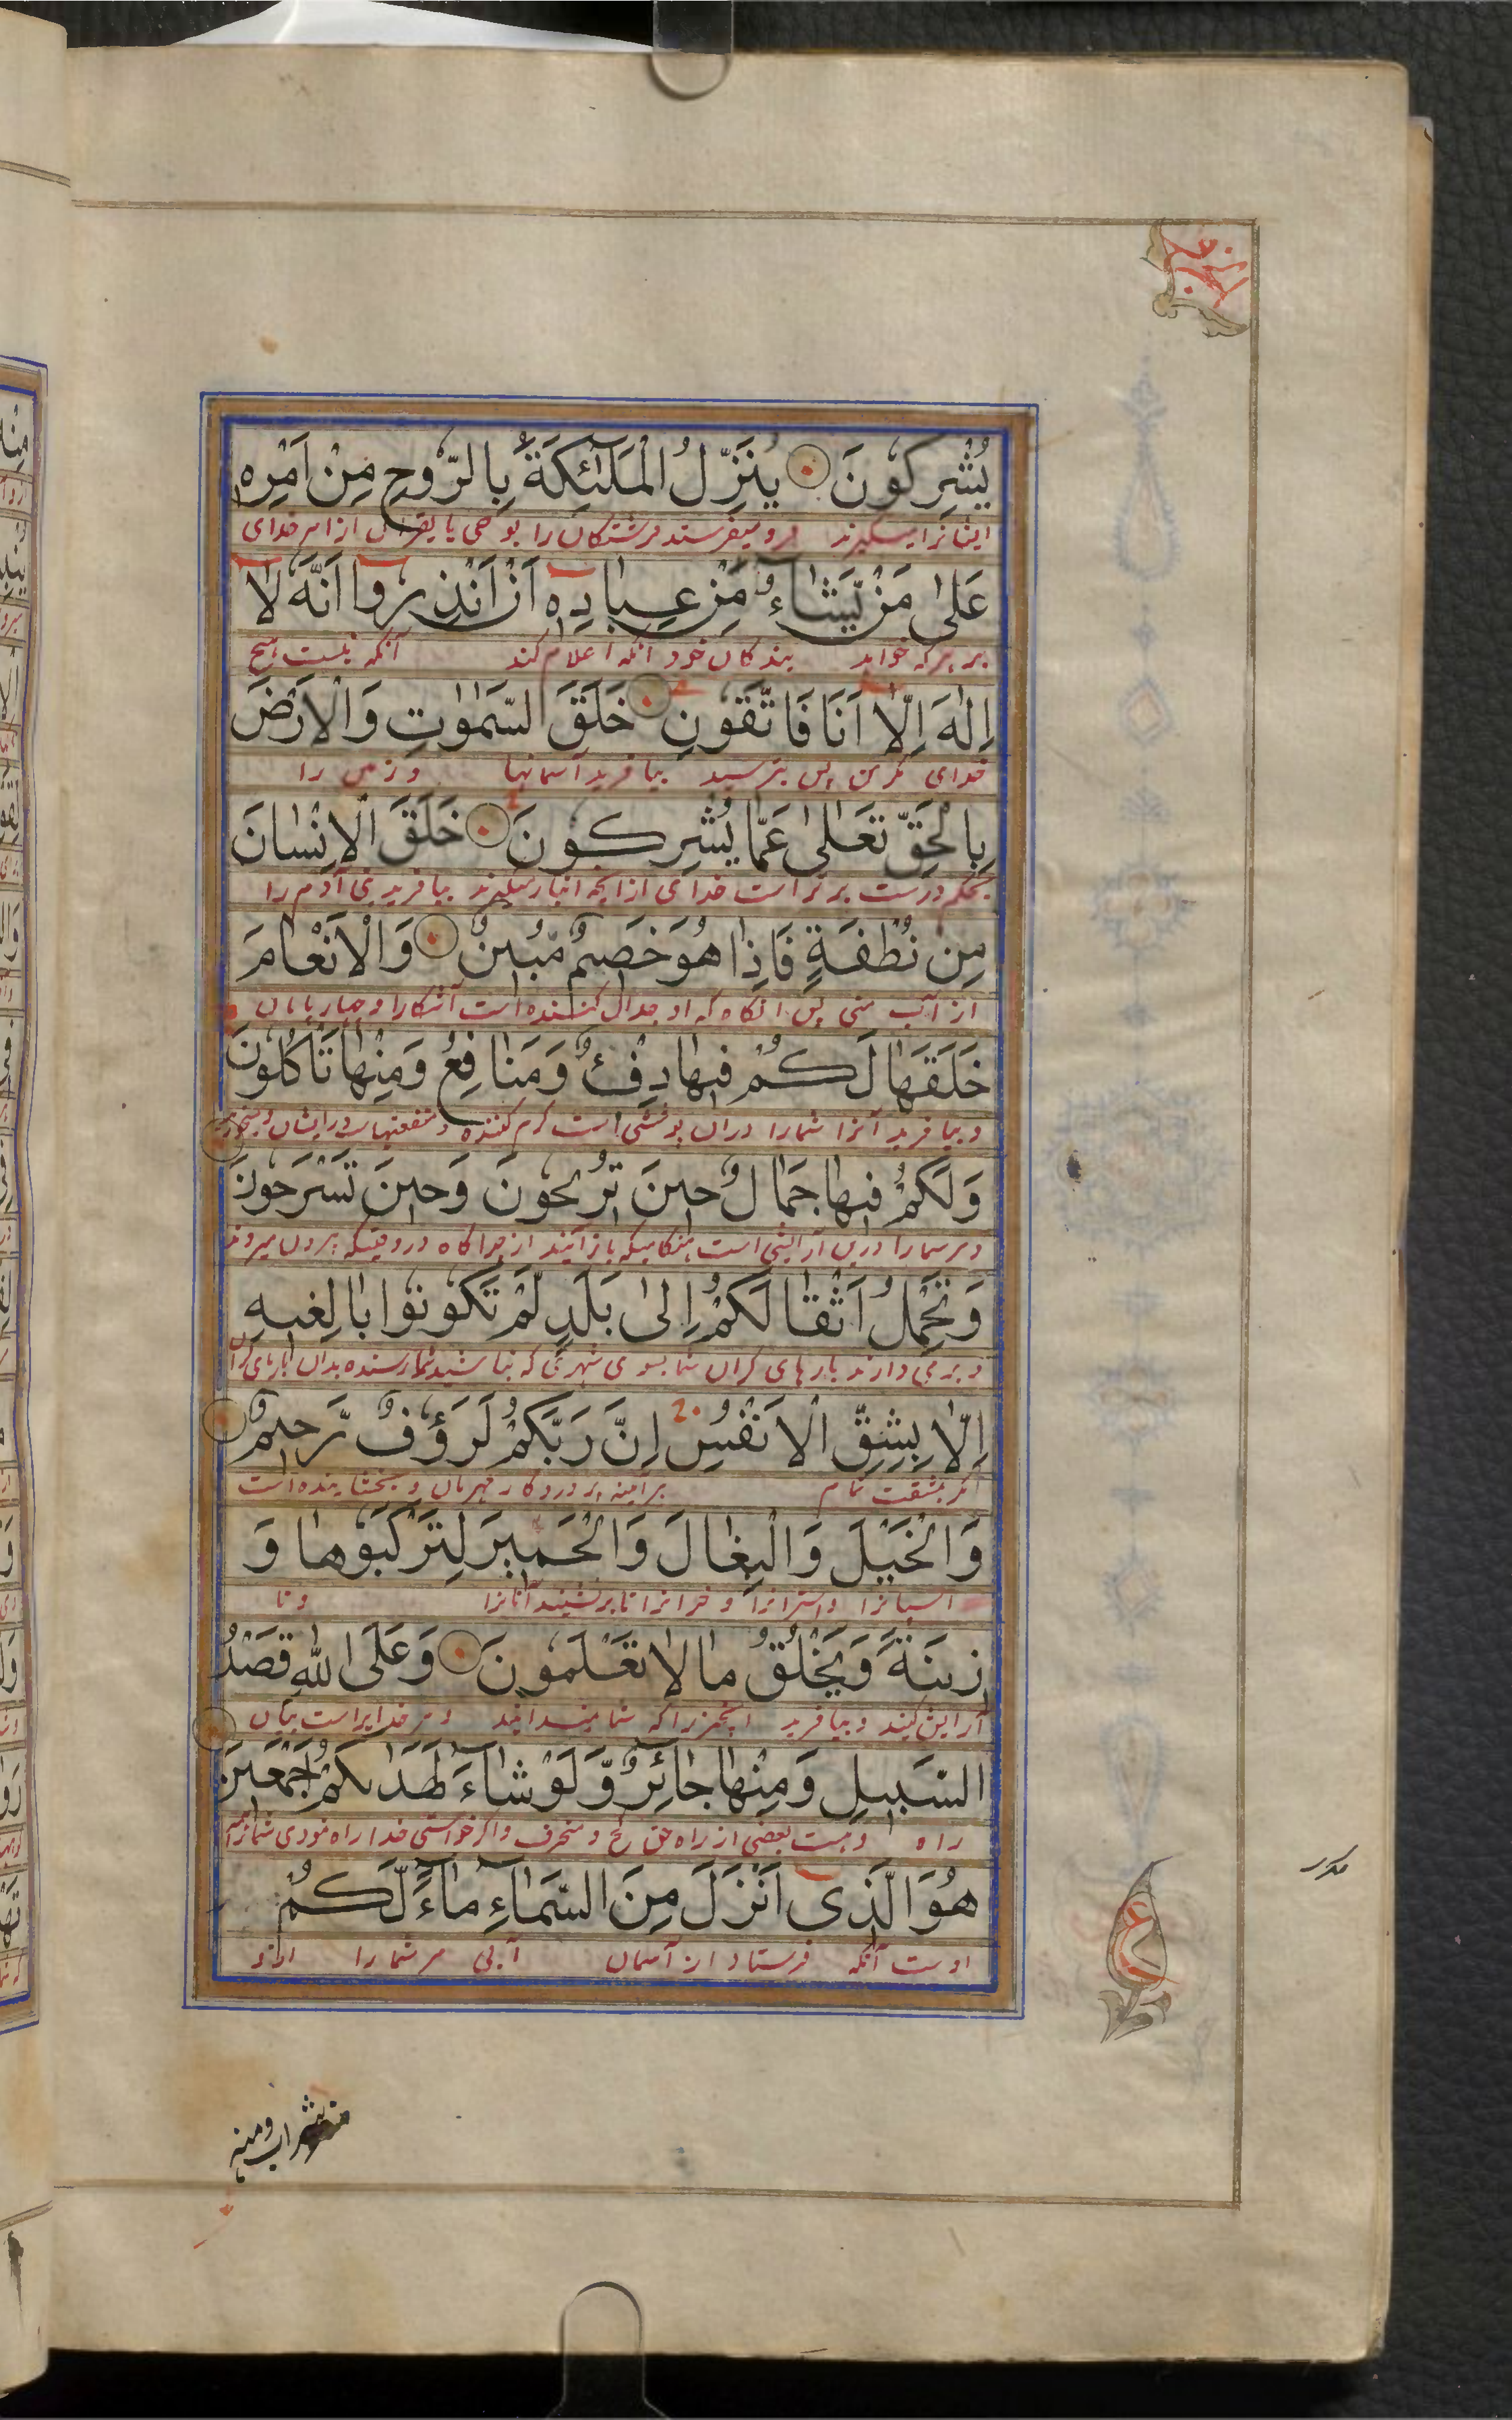 يُشْرِكُونَ يُنَزِّلُ الْمَلٰٓئِكَةَ بِالرُّوحِ مِنْ اَمْرِهِ
اینانرا میگیرند فرو میفرستد فرشتگان را بوحی یا بقران از امر خدای
عَلٰى مَنْ يَّشَآءُ مِنْ عِبَادِهِ اَنْ اَنْذِرُوا اَنَّهُ لَا
بر هر که خواهد بندکان خود آنکه اعلام کند آنکه نیست هیچ
اِلٰهَ اِلَّا اَنَا فَاتَّقُونِ خَلَقَ السَّمٰوٰتِ وَالْاَرْضَ
خدای مگر من پس بترسید بیافرید آسمانها و زمین را
بِالْحَقِّ تَعَالٰى عَمَّا يُشْرِكُونَ خَلَقَ الْاِنْسَانَ
بحکم درست برتر است خدای از آنچه انباز میگیرند بیافرید بنی آدم را
مِن نُّطْفَةٍ فَاِذَا هُوَ خَصِيمٌ مُّبِينٌ وَالْاَنْعَامَ
از آب منی پس آنکاه که او جدال کننده است آشکارا و چهارپایان
خَلَقَهَا لَكُمْ فِيهَا دِفْءٌ وَّمَنَافِعُ وَمِنْهَا تَأْكُلُونَ
و بیافرید آنرا شمارا دران پوششی است گرم کننده و منفعتهاست درایشان
وَلَكُمْ فِيهَا جَمَالٌ حِينَ تُرِيحُونَ وَحِينَ تَسْرَحُونَ
و مر شمارا درین آرایشی است هنگامیکه باز آیند از چراکاه و دروقتیکه بیرون میروند
وَتَحْمِلُ اَثْقَالَكُمْ اِلٰى بَلَدٍ لَّمْ تَكُونُوا بَالِغِيهِ
و بر می دارند بارهای کران شما بسوی شهری که نباشید شما رسنده بدان
اِلَّا بِشِقِّ الْاَنْفُسِ اِنَّ رَبَّكُمْ لَرَؤُفٌ رَّحِيمٌ
مگر بمشقت تمام هر آینه پروردکار مهربان و بخشاینده است
وَالْخَيْلَ وَالْبِغَالَ وَالْحَمِيرَ لِتَرْكَبُوهَا وَ
اسپانرا و استرانرا و خرانرا تا برنشینید آنانرا و تا
زِينَةً وَيَخْلُقُ مَا لَا تَعْلَمُونَ وَعَلَى اللهِ قَصْدُ
آرایش کنید و بیافرید آنچیزرا که شما نمیدانید و مر خدایراست بیان
السَّبِيلِ وَمِنْهَا جَائِرٌ وَّلَوْ شَآءَ لَهَدٰىكُمْ اَجْمَعِينَ
راه وهست بعضی از راه حق کج و منحرف و اگر خواستی خدا راه نمودی شمارا
هُوَ الَّذِى اَنْزَلَ مِنَ السَّمَآءِ مَآءً لَّكُمْ
اوست آنکه فرستاد از آسمان آبی مر شما را
ع
منه شراب ومنه